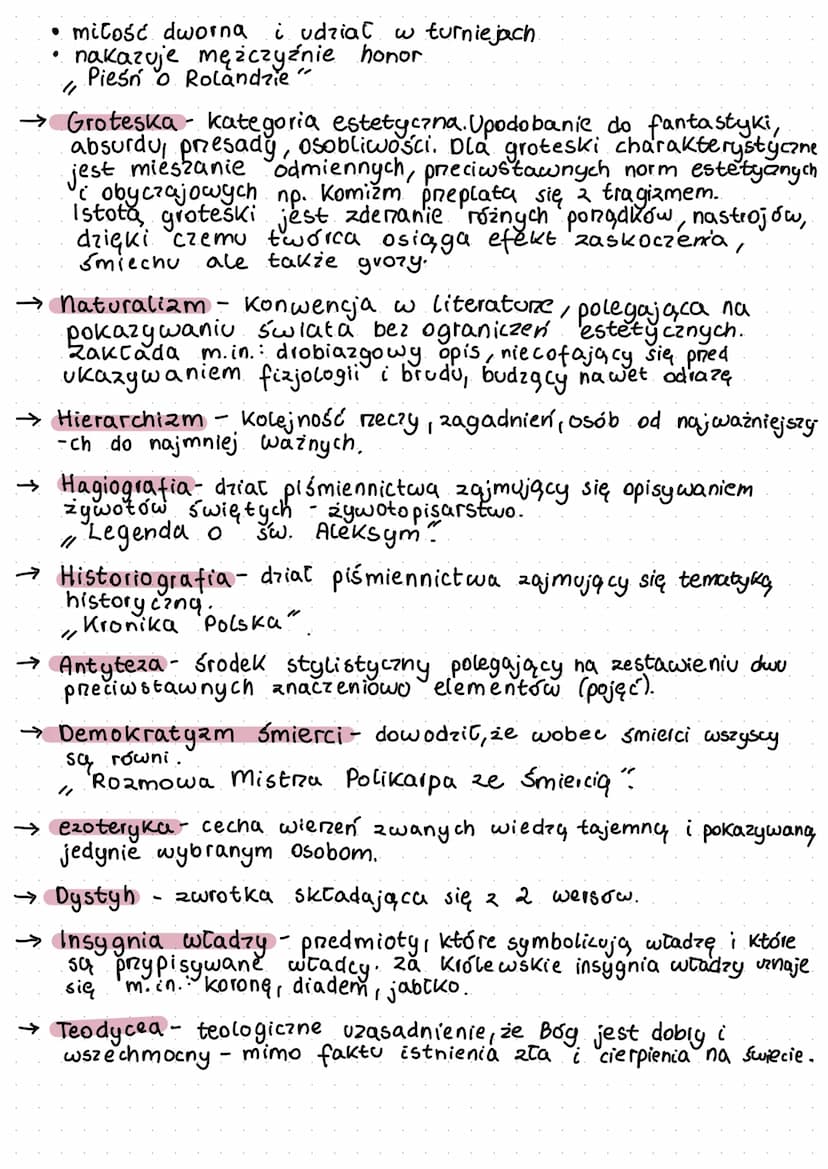 • miłość dworna i udział w turniejach
• nakazuje mężczyźnie honor
„Pieśń o Rolandzie"
→ Groteska - kategoria estetyczna. Upodobanie do fantastyki,
absurdu, przesady, osobliwości. Dla groteski charakterystyczne
jest mieszanie odmiennych, przeciwstawnych norm estetycznych
i obyczajowych np. komizm przeplata się z tragizmem.
Istotą groteski jest zderzanie różnych porządków, nastrojów,
dzięki czemu twórca osiąga efekt zaskoczenia,
śmiechu ale także grozy.
→ Naturalizm - Konwencja w literaturze, polegająca na
pokazywaniu świata bez ograniczeń estetycznych.
Zakłada m.in.: drobiazgowy opis, niecofający się przed
ukazywaniem fizjologii i brudu, budzący nawet odrazę
→ Hierarchizm - Kolejność rzeczy, zagadnień, osób od najważniejszy-
-ch do najmniej ważnych.
→ Hagiografia - dział piśmiennictwa zajmujący się opisywaniem
żywotów świętych - żywotopisarstwo.
„Legenda o św. Aleksym".
→ Historiografia - dział piśmiennictwa zajmujący się tematyką
historyczną.
„Kronika Polska".
→ Antyteza - środek stylistyczny polegający na zestawieniu dwu
przeciwstawnych znaczeniowo elementów (pojęć).
→ Demokratyzm śmierci - dowodził, że wobec śmierci wszyscy
są równi.
„Rozmowa Mistrza Polikarpa ze Śmiercią".
→ ezoteryka - cecha wierzeń zwanych wiedzą tajemną i pokazywaną
jedynie wybranym osobom.
→ Dystyh - zwrotka składająca się z 2 wersów.
→ Insygnia władzy - przedmioty, które symbolizują władzę i które
są przypisywane władcy. Za królewskie insygnia władzy uznaje
się m.in.: koronę, diadem, jabłko.
→ Teodycea - teologiczne uzasadnienie, że Bóg jest dobry i
wszechmocny - mimo faktu istnienia zła i cierpienia na świecie.